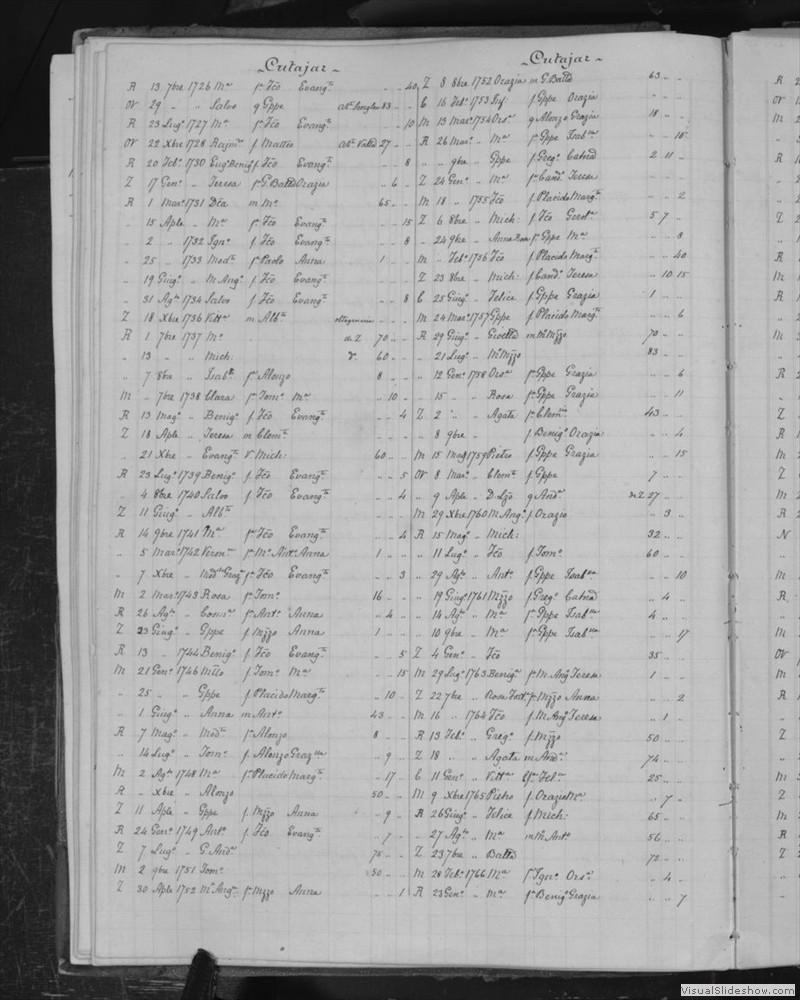 Cutajar
R 13 7bre 1726 Ma fa Fco Evanga .. .. 40
Or 29 .. .. Salvo q Gppe 83 .. ..
R 23 Lugo 1727 Ma fa Fco Evanga .. .. 10
Or 22 Xbre 1728 f Matteo 27 .. ..
R 20 Febo 1730 f Fco Evanga .. .. 8
Z 17 Geno .. Teresa fa G. Batta Orazia .. 6 ..
R 1 Marzo 1731 Dca m Ma 65 .. ..
.. 15 Aple .. Ma fa Fco Evanga .. .. 15
.. 2 .. 1732 Igno f Fco Evanga .. .. 8
.. 25 .. 1733 Moda fa Paolo Anna 1 .. ..
.. 19 Giugo .. M Ango f Fco Evanga
.. 31 Ago 1734 Salvo f Fco Evanga .. .. 8
Z 18 Xbre 1736 Vitta m Alba .. .. ..
R 1 7bre 1737 Ma 70 .. ..
.. 13 .. .. Mich: V. 60 .. ..
.. 7 8bre .. Isaba fa Alonzo 8 .. ..
M .. 7bre 1738 Clara fa Tomo Ma .. 10 ..
R 13 Mago .. Benigo f Fco Evanga .. .. 4
Z 18 Aple .. Teresa m Clema
.. 21 Xbre .. Evanga V Mich: 60 .. ..
R 23 Lugo 1739 Benigo f Fco Evanga .. .. 5
.. 4 8bre 1740 Salvo f Fco Evanga .. .. 4
Z 11 Giugo .. Alba
R 14 9bre 1741 Ma fa Fco Evanga .. .. 4
.. 5 Marzo 1742 Verona fa Ma Anto Anna 1 .. ..
.. 7 Xbre .. fa Fco Evanga .. .. 3
M 2 Marzo 1743 Rosa fa Tomo 16 .. ..
R 26 Ago .. fa Anto Anna .. 4 ..
Z 23 Giugo .. Gppe f Mzzo Anna 1 .. ..
R 13 .. 1744 Benigo f Fco Evanga .. .. 5
M 21 Geno 1746 f Tomo Ma .. .. 15
.. 25 .. .. Gppe f Placido Marga .. 10 ..
.. 1 Giugo .. Anna m Anto 43 .. ..
R 7 Mago .. Moda fa Alonzo 8 .. ..
.. 14 Lugo .. Tomo f. Alonzo Grazia .. 9 ..
M 2 Ago 1748 Ma fa Placido Marga .. 17 ..
R .. Xbre .. Alonzo 50 .. ..
Z 11 Aple .. Gppe f Mzzo Anna .. 9 ..
R 24 Geno 1749 Anto f Fco Evanga .. 7 ..
Z 7 Lugo .. G. Anda 75 .. ..
M 2 9bre 1751 Tomo 50 .. ..
Z 30 Aple 1752 Ma Anga fa Mzzo Anna .. .. 1
Cutajar
Z 8 8bre 1752 Orazia m G. Batta 63 .. ..
C 16 Febo 1753 f Gppe Orazia
M 13 Marzo 1754 Orsa q Alonzo Grazia 18 .. ..
R 26 Marzo .. Ma fa Gppe Isaba .. .. 18
.. .. 9bre .. Gppe f Grego 2 11 ..
Z 24 Geno .. Ma fa Cando Teresa
M 18 .. 1755 Fco f Placido Marga .. .. 2
Z 6 8bre .. Mich: f Fco 5 7 ..
.. 24 9bre .. Anna Rosa fa Gppe Ma .. .. 8
M .. Febo 1756 Fco f Placido Marga .. .. 40
Z 23 8bre .. Mich: f Cando Teresa .. 10 15
C 25 Giugo .. Felice f Gppe Grazia 1 .. ..
M 24 Marzo 1757 Gppe f Placido Marga .. .. 6
R 29 Giugo .. m M Mzzo 70 .. ..
.. 21 Lugo .. Ma Mzzo 83 .. ..
.. 12 Geno 1758 Orsa fa Gppe Grazia .. .. 6
.. 15 .. .. Rosa fa Gppe Grazia .. .. 11
Z 2 .. .. Agata fa Clema 43 .. ..
.. 8 9bre .. f Benigo Orazia .. .. 4
M 15 Mago 1759 Pietro f Gppe Grazia .. .. 15
Or 8 Marzo .. Clema f Gppe 7 .. ..
.. 9 Aple .. D. Lzo q Anda 27 .. ..
M 29 Xbre 1760 M Ango f. Orazio .. 3 ..
R 15 Mago .. Mich: 32 .. ..
.. 11 Lugo .. Fco f Tomo 60 .. ..
.. 29 Ago .. Anto f Gppe Isaba .. .. 10
.. 19 Giugo 1761 Mzzo f Grego .. 4 ..
.. 14 Ago .. Ma fa Gppe Isaba 4 .. ..
.. 10 9bre .. Ma fa Gppe Isaba .. .. 17
Z 4 Geno .. Fco 35 .. ..
M 29 Lugo 1763 Benigo fa M Ango Teresa 1 .. ..
Z 22 7bre .. Rosa fa Mzzo Anna .. .. 2
M 16 .. 1764 Fco f M Ango Teresa .. 1 ..
R 13 Febo .. Grego f Mzzo 50 .. ..
Z 18 .. .. Agata m Anda 74 .. ..
C 11 Geno .. Vitta 25 .. ..
M 9 Xbre 1765 Pietro f Orazio Ma .. 7 ..
R 26 Giugo .. Felice f Mich: 65 .. ..
.. 27 Ago .. Ma Anto 56 .. ..
Z 23 7bre .. Batta 72 .. ..
M 28 Febo 1766 Ma fa Igno Orsa .. 4 ..
R 23 Geno .. Ma fa Benigo Grazia .. .. 7
VisualSlideshow.com